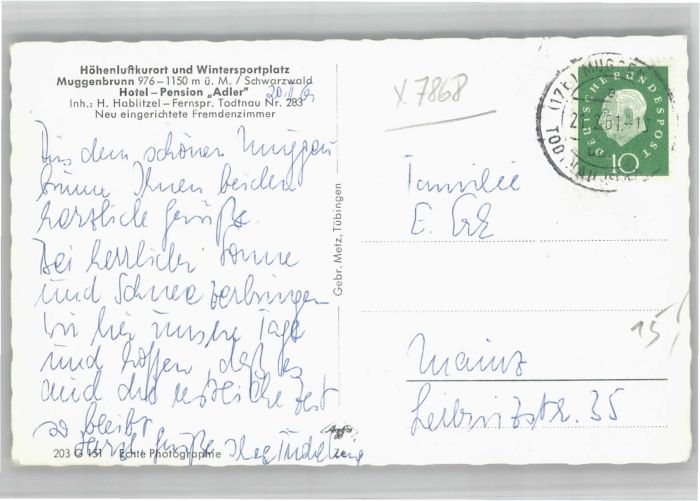 Höhenluftkurort und Wintersportplatz
Muggenbrunn 976–1150 m ü. M. / Schwarzwald
Hotel – Pension „Adler"
Inh.: H. Hablitzel – Fernspr. Todtnau Nr. 283
Neu eingerichtete Fremdenzimmer
20.II.61
Aus dem schönen Muggen
brunn Ihnen beiden
herzliche Grüße.
Bei herrlicher Sonne
und Schnee verbringen
wir hier unsere Tage
und hoffen, daß es
auch die restliche Zeit
so bleibt
Herzl. Grüße
203 G 151 Echte Photographie
Gebr. Metz, Tübingen
Agfa
X 7868
DEUTSCHE BUNDESPOST
10
Familie
E.
15,
Mainz
Leibnizstr. 35